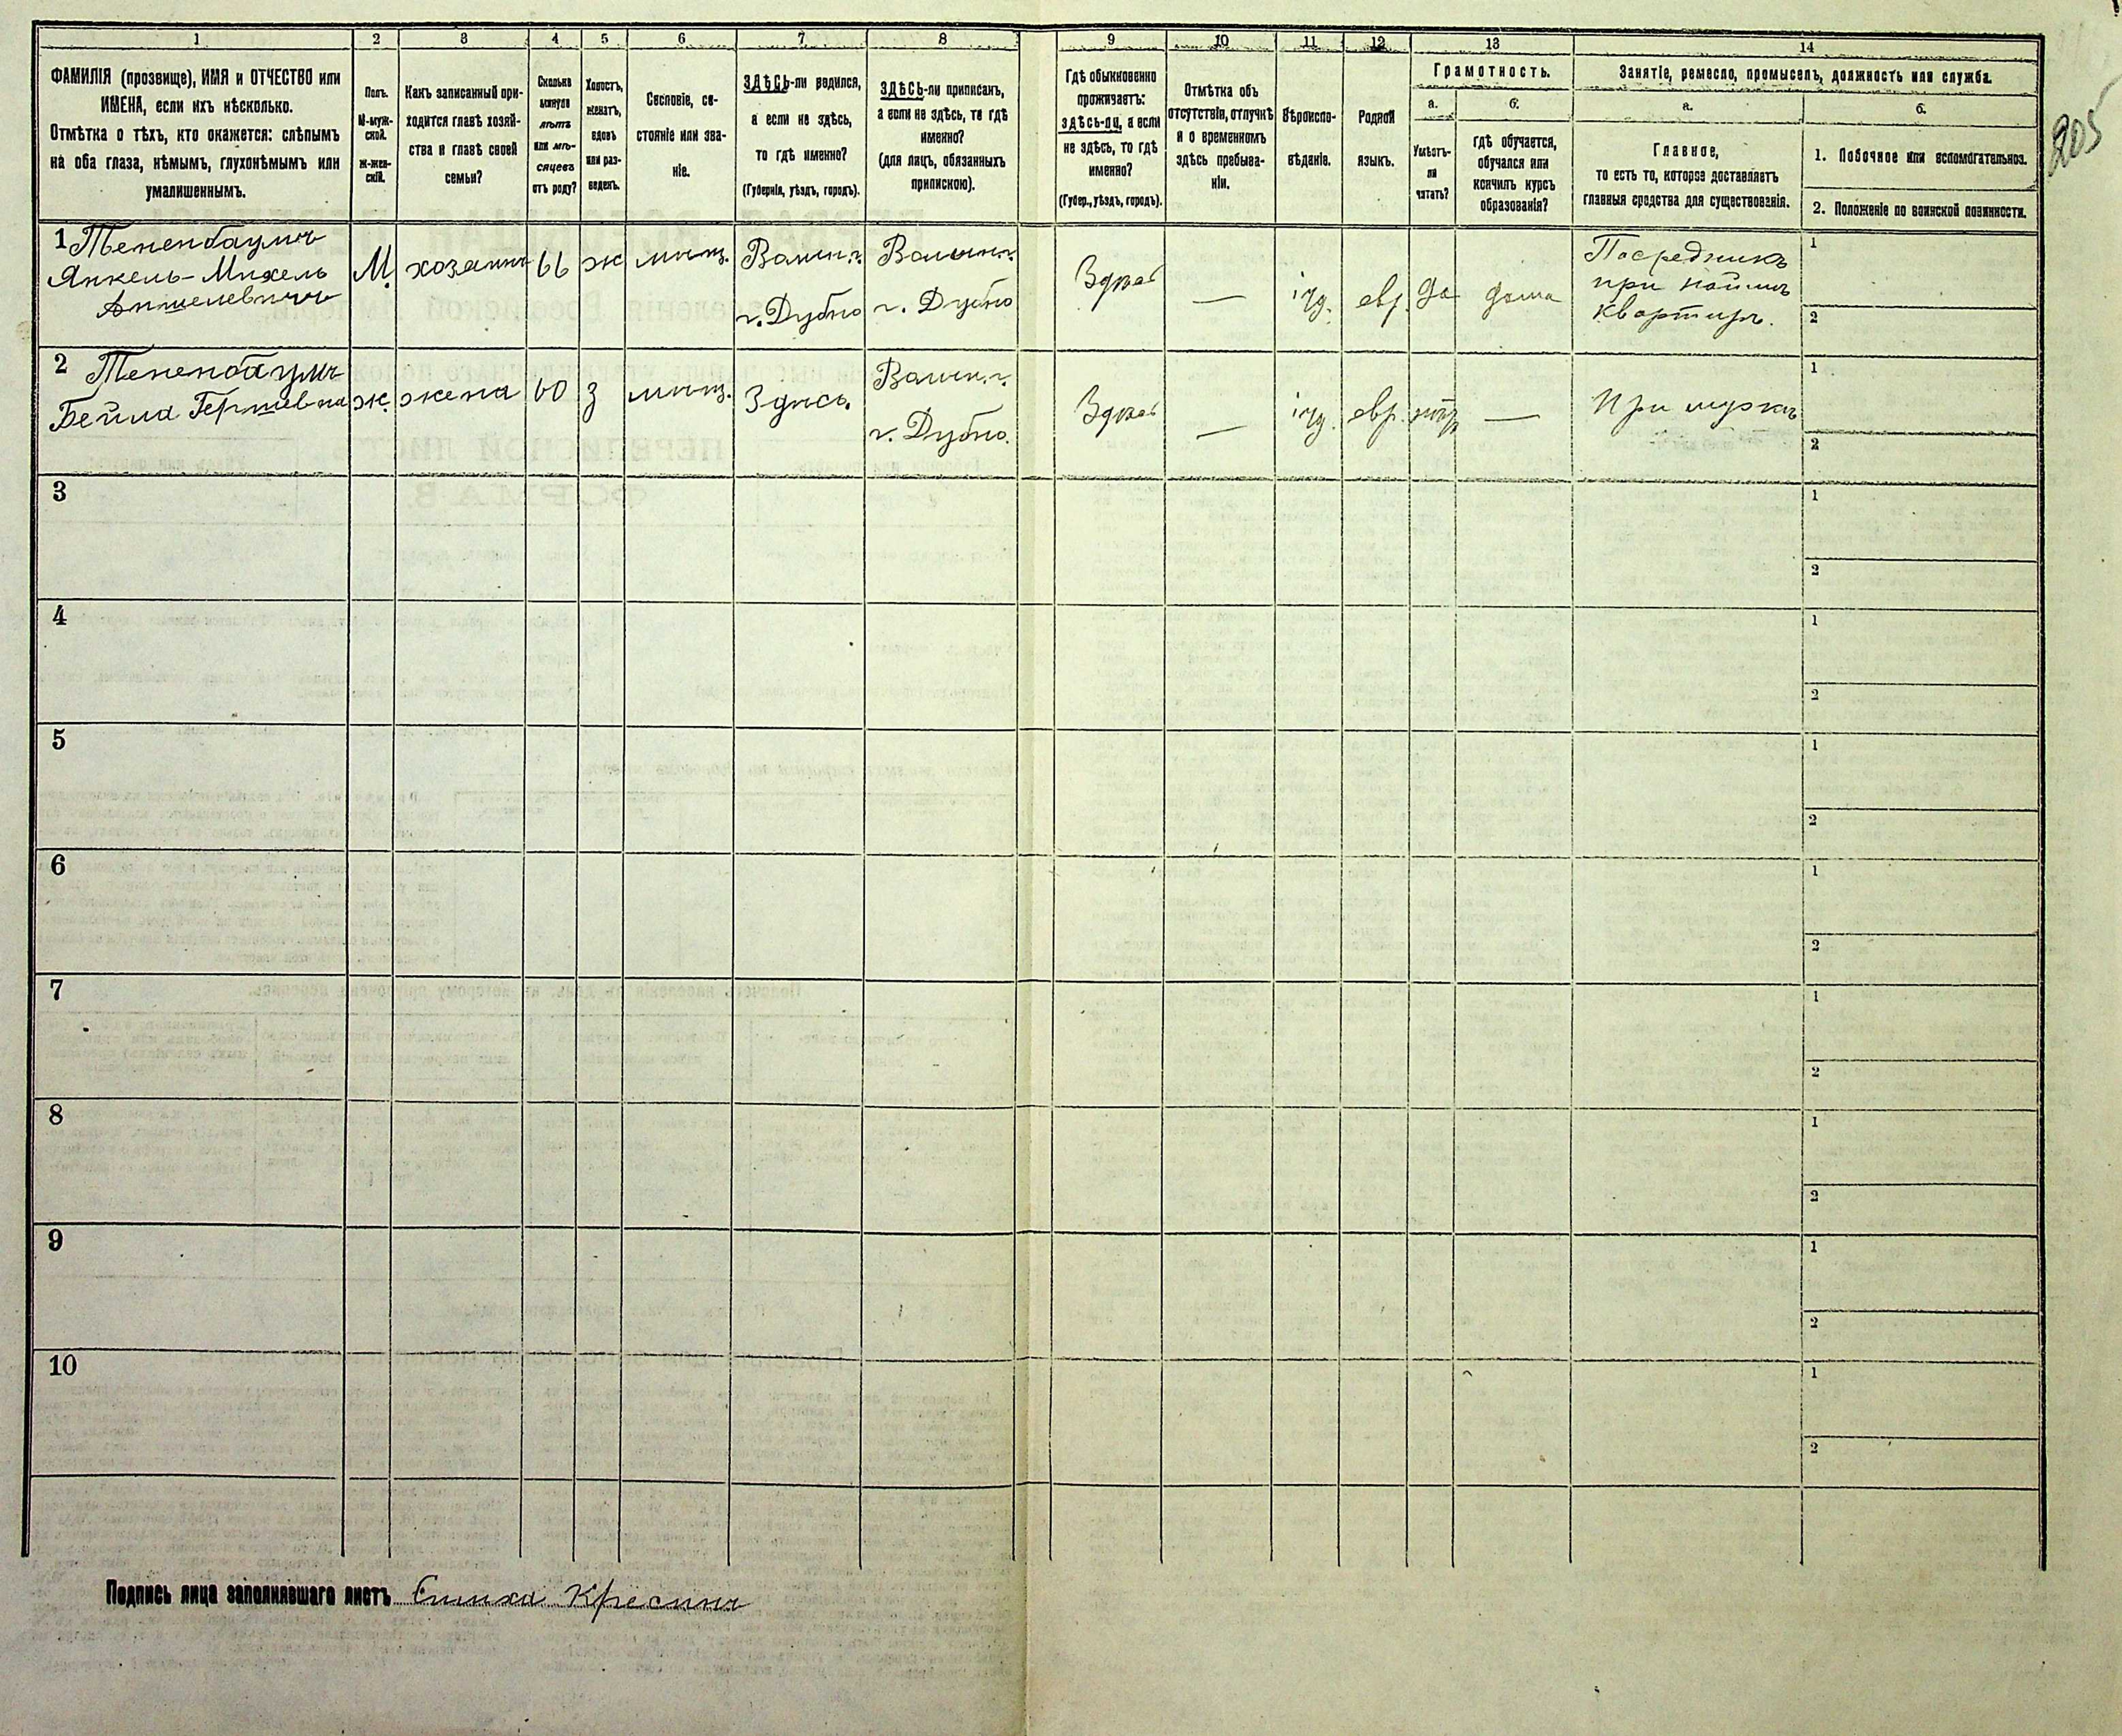 1 2 3 4 5 6 7 8 9 10 11 12 13 14
ФАМИЛІЯ (прозвище), ИМЯ и ОТЧЕСТВО или
ИМЕНА, если ихъ нѣсколько.
Отмѣтка о тѣхъ, кто окажется: слѣпымъ
на оба глаза, нѣмымъ, глухонѣмымъ или
умалишеннымъ.
Полъ.
М-муж-
ской.
Ж-жен-
скій.
Какъ записанный при-
ходится главѣ хозяй-
ства и главѣ своей
семьи?
Сколько
минуло
лѣтъ
или мѣ-
сяцевъ
отъ роду?
Холостъ,
женатъ,
вдовъ
или раз-
веденъ.
Сословіе, со-
стояніе или зва-
ніе.
ЗДѢСЬ-ли родился,
а если не здѣсь,
то гдѣ именно?
(Губернія, уѣздъ, городъ).
ЗДѢСЬ-ли приписанъ,
а если не здѣсь, то гдѣ
именно?
(для лицъ, обязанныхъ
припискою).
Гдѣ обыкновенно
проживаетъ:
здѣсь-ли, а если
не здѣсь, то гдѣ
именно?
(Губер., уѣздъ, городъ).
Отмѣтка объ
отсутствіи, отлучкѣ
и о временномъ
здѣсь пребыва-
ніи.
Вѣроиспо-
вѣданіе.
Родной
языкъ.
Грамотность.
а.
Умѣетъ-
ли
читать?
б.
гдѣ обучается,
обучался или
кончилъ курсъ
образованія?
Занятіе, ремесло, промыселъ, должность или служба.
а.
Главное,
то есть то, которое доставляетъ
главныя средства для существованія.
б.
1. Побочное или вспомогательное.
2. Положеніе по воинской повинности.
205
1 Тененбаумъ
Янкель-Михель
Аншелевичъ
М.
хозяинъ
66
ж
мѣщ.
Волын.г.
г. Дубно
Волын.г.
г. Дубно
Здѣсь
—
іуд.
евр.
да
дома
Посредникъ
при наймѣ
квартиръ.
1
2
2 Тененбаумъ
Бейла Гершевна
ж.
жена
60
з
мѣщ.
Здѣсь.
Волын.г.
г. Дубно.
Здѣсь
—
іуд.
евр.
нѣтъ
—
При мужѣ
1
2
3
1
2
4
1
2
5
1
2
6
1
2
7
1
2
8
1
2
9
1
2
10
1
2
Подпись лица заполнявшаго листъ Кресинъ